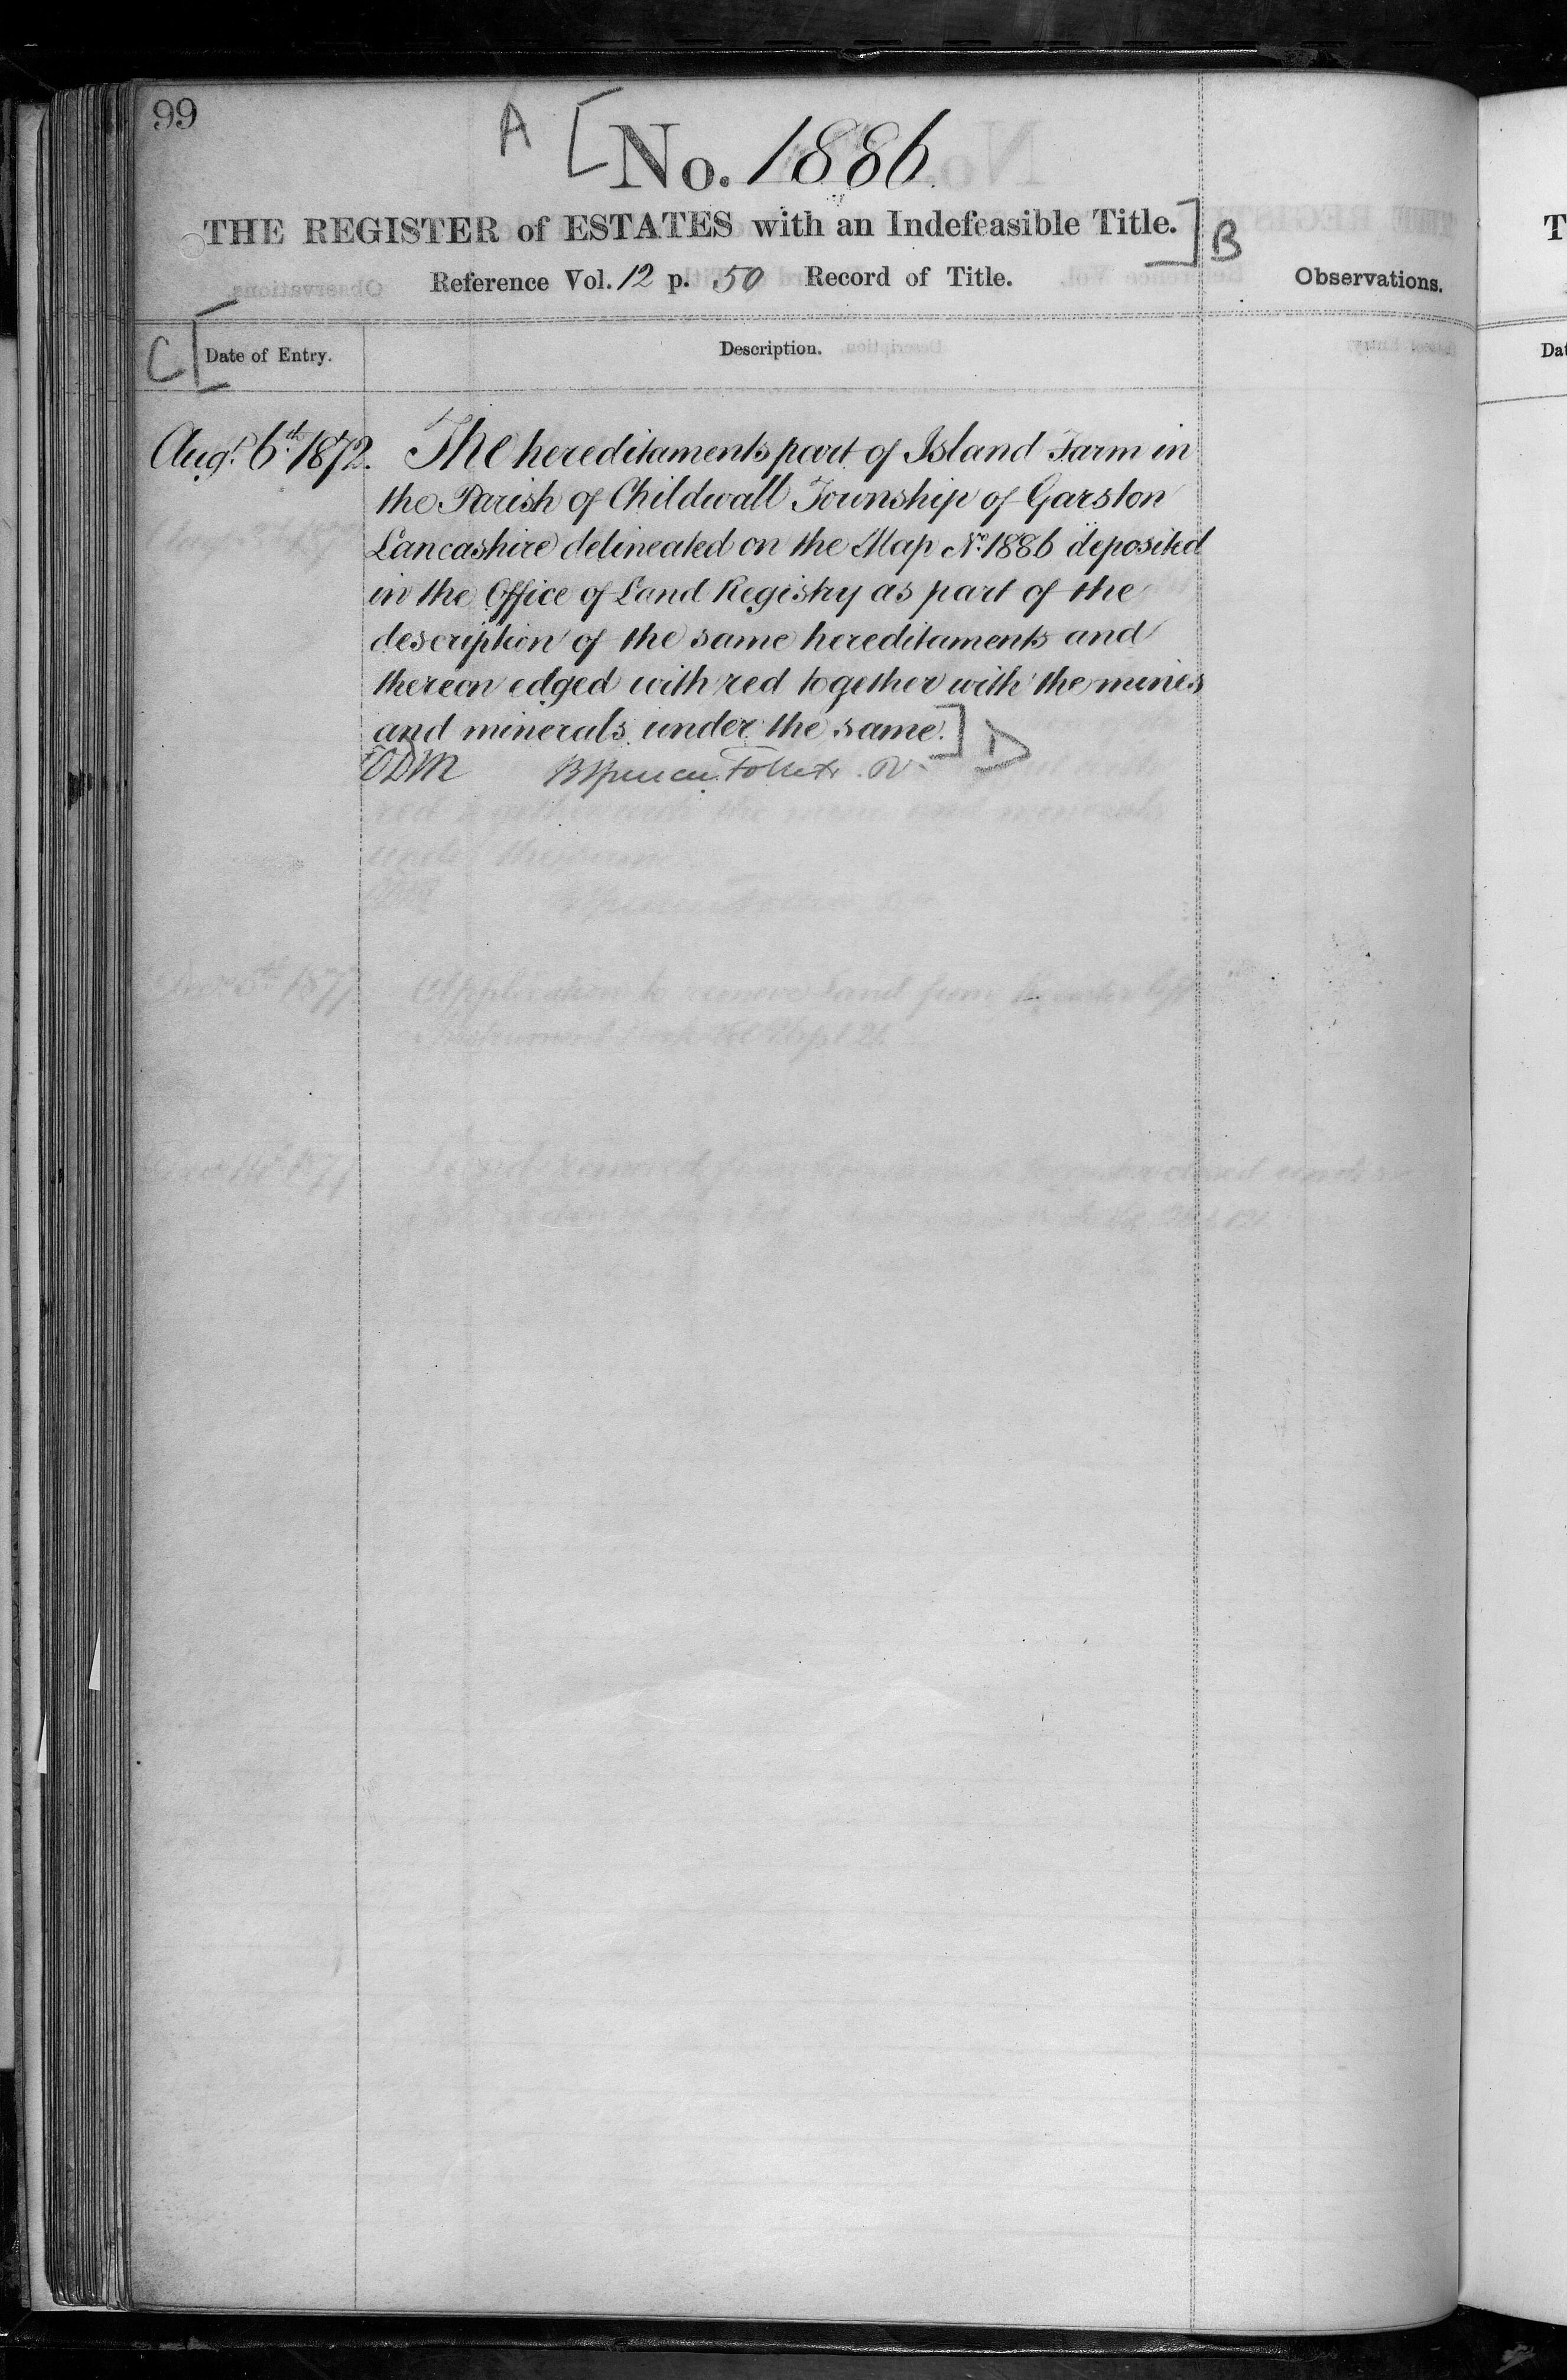 99
A [ No. 1886
THE REGISTER of ESTATES with an Indefeasible Title. ] B
Reference Vol. 12 p. 50 Record of Title.
Observations.
C [ Date of Entry.
Description.
Augt. 6th. 1872. The hereditaments part of Island Farm in
the Parish of Childwall Township of Garston
Lancashire delineated on the Map No. 1886 deposited
in the Office of Land Registry as part of the
description of the same hereditaments and
thereon edged with red together with the mines
and minerals under the same. ] D
B Spencer Follett. R.
T
Dat